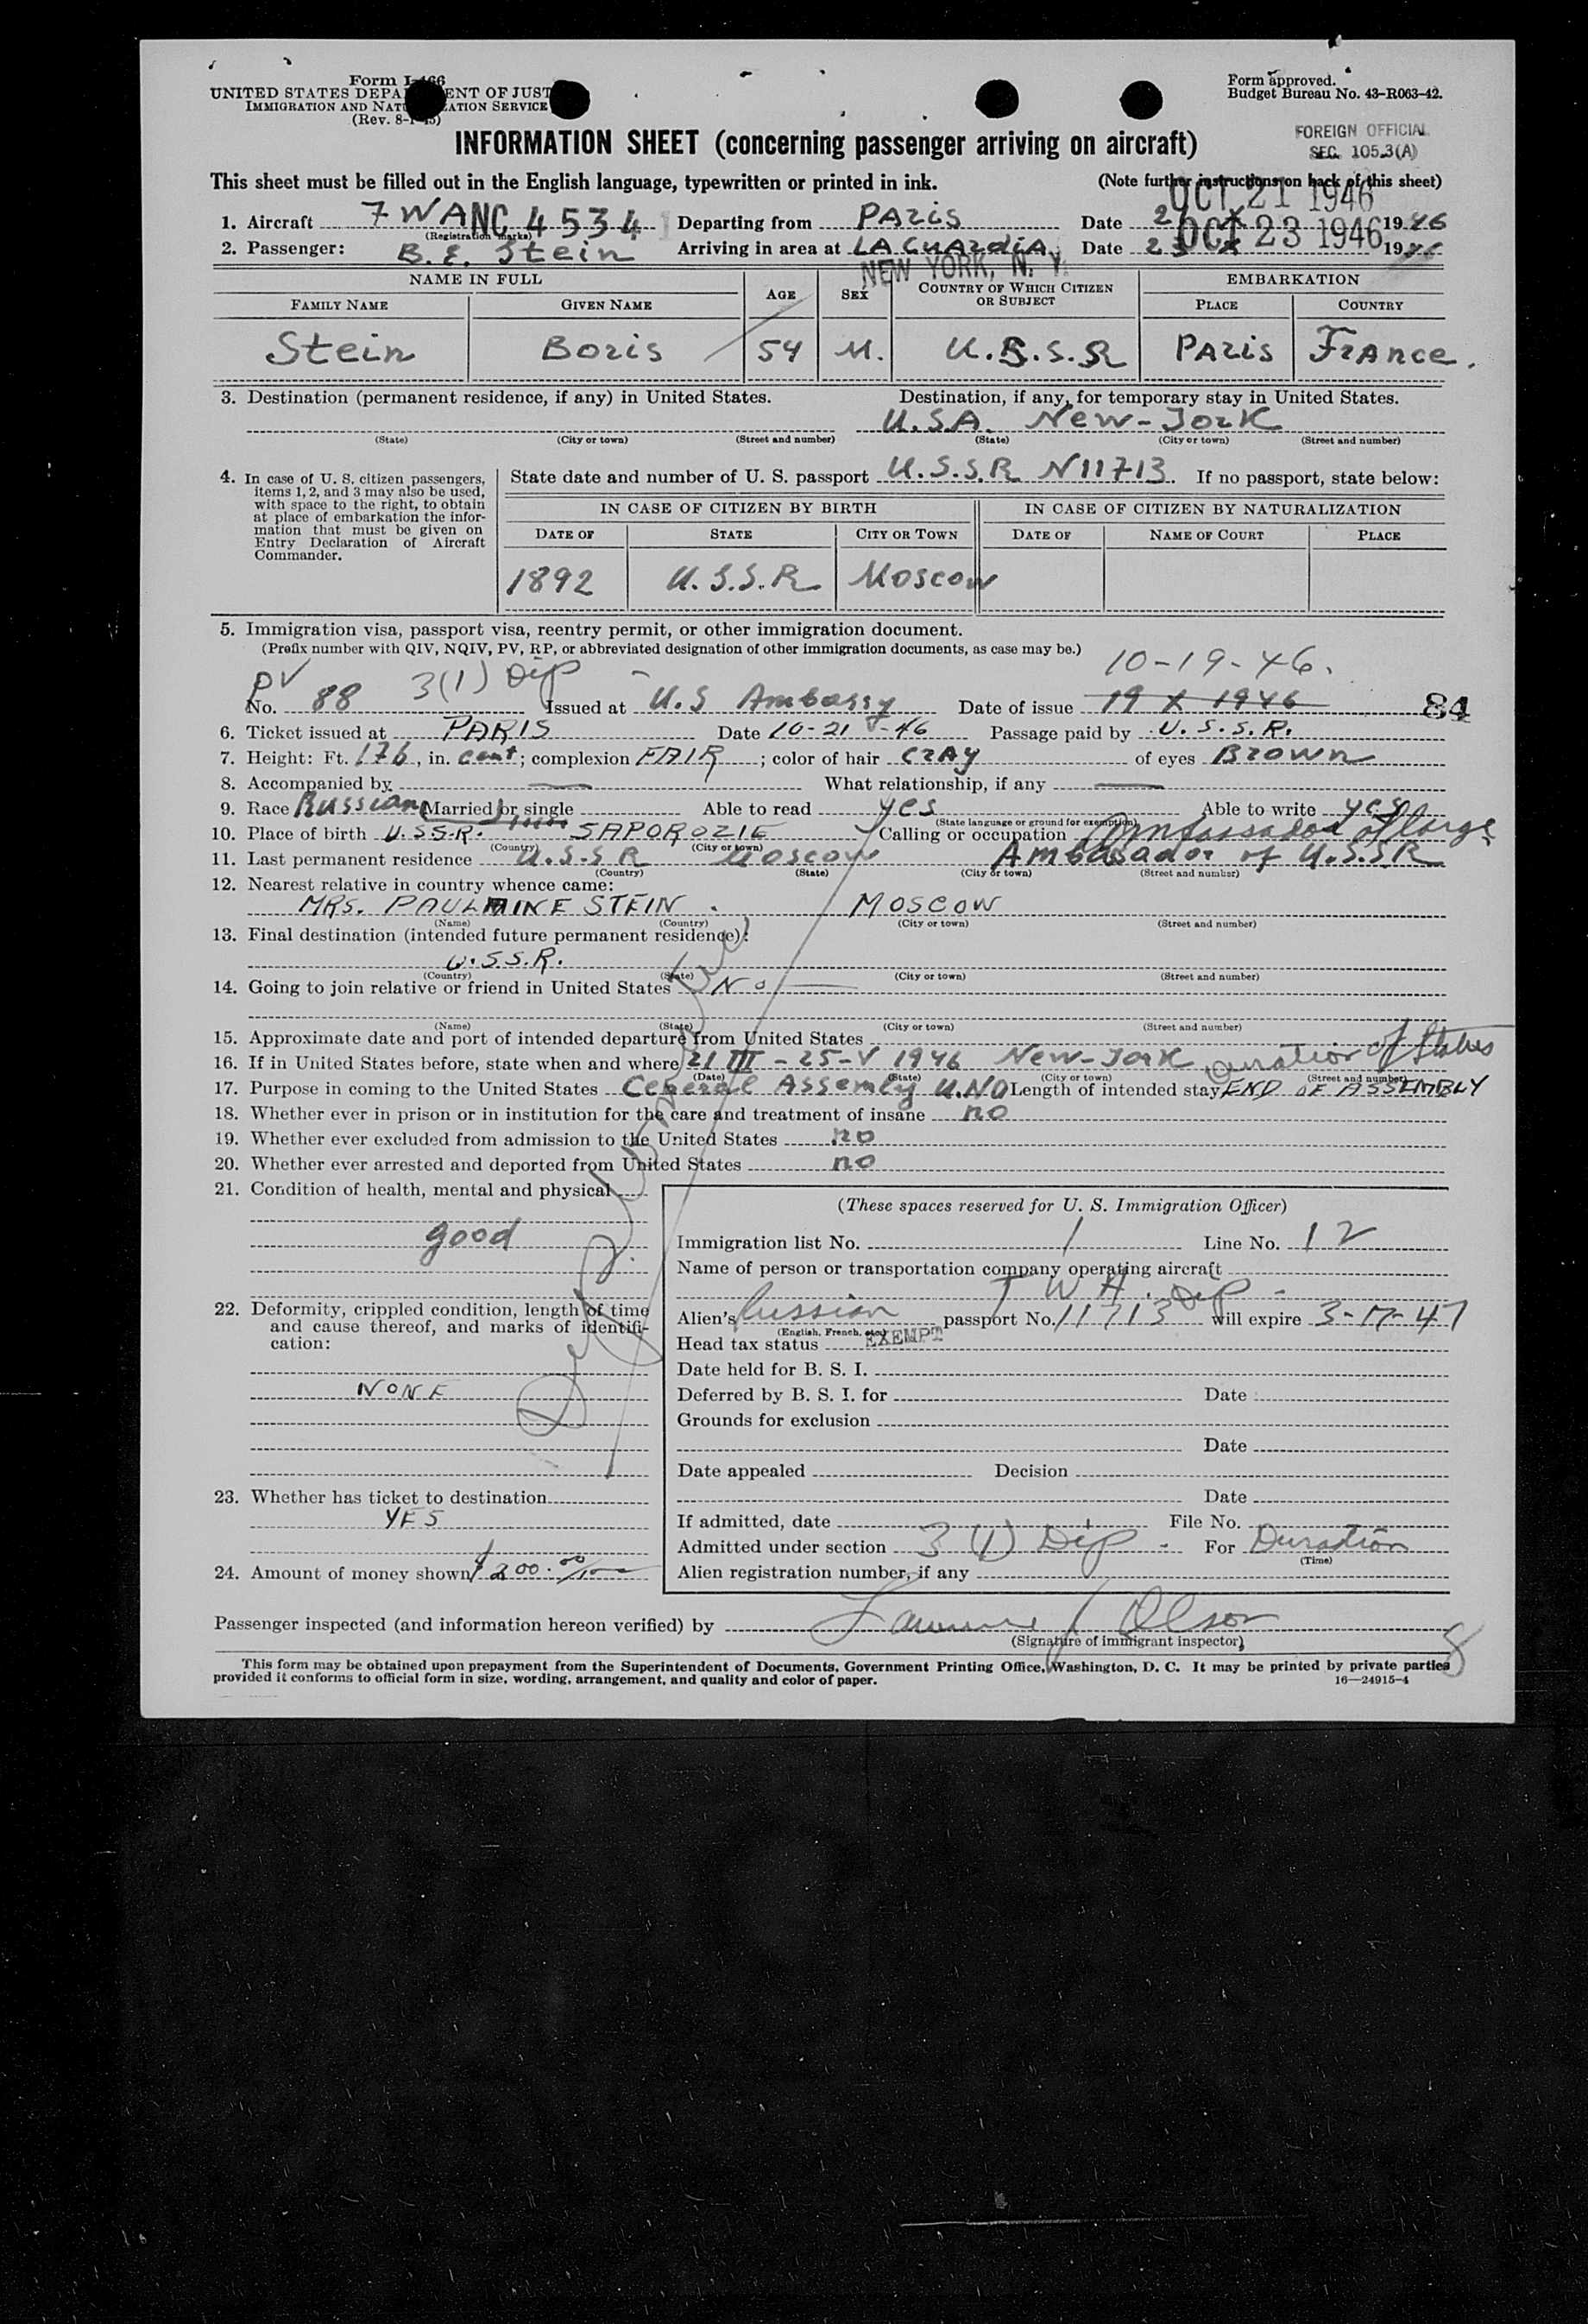 Form I-466
UNITED STATES DEPARTMENT OF JUSTICE
IMMIGRATION AND NATURALIZATION SERVICE
(Rev. 8-1-45)
Form approved.
Budget Bureau No. 43-R063-42.
INFORMATION SHEET (concerning passenger arriving on aircraft)
FOREIGN OFFICIAL
SEC. 105.3(A)
This sheet must be filled out in the English language, typewritten or printed in ink. (Note further instructions on back of this sheet)
OCT 21 1946
1. Aircraft 7 WA NC 4534 Departing from PAris Date 21 X 1946
(Registration marks)
OCT 23 1946
2. Passenger: B. E. Stein Arriving in area at LA GuArdiA Date 23 X 1946
NEW YORK, N. Y.
NAME IN FULL AGE SEX COUNTRY OF WHICH CITIZEN OR SUBJECT EMBARKATION
FAMILY NAME GIVEN NAME PLACE COUNTRY
Stein Boris 54 M. U.S.S.R PAris FrAnce.
3. Destination (permanent residence, if any) in United States. Destination, if any, for temporary stay in United States.
U.S.A. New-Jork
(State) (City or town) (Street and number) (State) (City or town) (Street and number)
4. In case of U. S. citizen passengers, items 1, 2, and 3 may also be used, with space to the right, to obtain at place of embarkation the information that must be given on Entry Declaration of Aircraft Commander.
State date and number of U. S. passport U.S.S.R N11713. If no passport, state below:
IN CASE OF CITIZEN BY BIRTH IN CASE OF CITIZEN BY NATURALIZATION
DATE OF STATE CITY OR TOWN DATE OF NAME OF COURT PLACE
1892 U.S.S.R Moscow
5. Immigration visa, passport visa, reentry permit, or other immigration document.
(Prefix number with QIV, NQIV, PV, RP, or abbreviated designation of other immigration documents, as case may be.)
10-19-46.
PV 3(1) Dip
No. 88 Issued at U.S Ambassy Date of issue 19 X 1946 84
6. Ticket issued at PARIS Date 10-21-46 Passage paid by U.S.S.R.
7. Height: Ft. 176, in. cent; complexion FAIR; color of hair GrAy of eyes Brown
8. Accompanied by — What relationship, if any —
9. Race Russian Married or single Able to read yes Able to write yes
(State language or ground for exemption)
10. Place of birth U.S.S.R. SAPOROZIE Calling or occupation Ambassador at large
(Country) (City or town)
11. Last permanent residence U.S.S.R Moscow Ambasador of U.S.S.R
(Country) (State) (City or town) (Street and number)
12. Nearest relative in country whence came:
MRS. PAULINE STEIN. MOSCOW
(Name) (Country) (City or town) (Street and number)
13. Final destination (intended future permanent residence):
U.S.S.R.
(Country) (State) (City or town) (Street and number)
14. Going to join relative or friend in United States No
(Name) (State) (City or town) (Street and number)
15. Approximate date and port of intended departure from United States
16. If in United States before, state when and where 21 III - 25-V 1946 New-Jork Duration of Status
(Date) (State) (City or town) (Street and number)
17. Purpose in coming to the United States General Assembly U.NO Length of intended stay END OF ASSEMBLY
18. Whether ever in prison or in institution for the care and treatment of insane no
19. Whether ever excluded from admission to the United States no
20. Whether ever arrested and deported from United States no
21. Condition of health, mental and physical
good
22. Deformity, crippled condition, length of time and cause thereof, and marks of identification:
NONE
23. Whether has ticket to destination
YES
24. Amount of money shown $200.00
(These spaces reserved for U. S. Immigration Officer)
Immigration list No. 1 Line No. 12
Name of person or transportation company operating aircraft
T W A. Dip -
Alien's Russian passport No. 11713 will expire 3-17-47
(English, French, etc.)
Head tax status EXEMPT
Date held for B. S. I.
Deferred by B. S. I. for Date
Grounds for exclusion
Date
Date appealed Decision
Date
If admitted, date File No.
Admitted under section 3 (1) Dip - For Duration
(Time)
Alien registration number, if any
Passenger inspected (and information hereon verified) by Lawrence J Olson
(Signature of immigrant inspector)
8
This form may be obtained upon prepayment from the Superintendent of Documents, Government Printing Office, Washington, D. C. It may be printed by private parties
provided it conforms to official form in size, wording, arrangement, and quality and color of paper. 16—24915-4